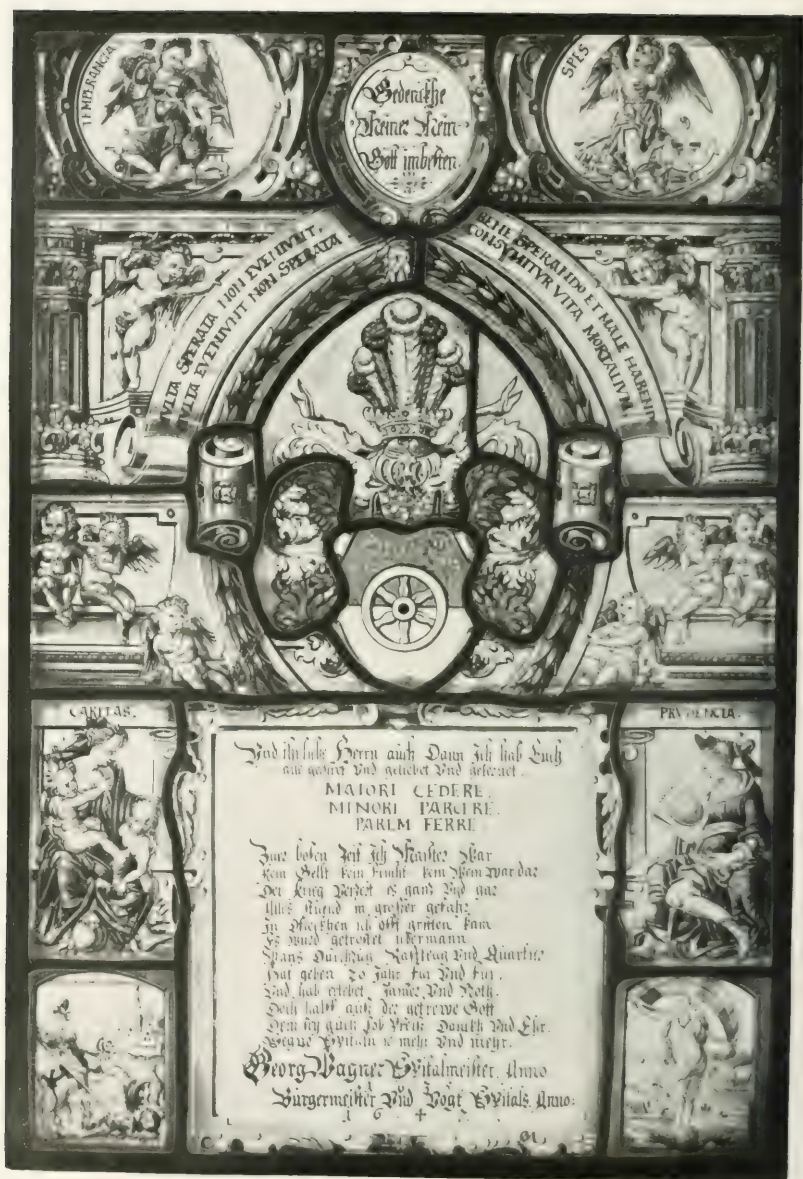 TEMPERANCIA
Gedenckhe
Meiner Mein
Gott im besten.
SPES
MVLTA SPERATA NON EVENIVNT,
MVLTA EVENIVNT NON SPERATA
BENE SPERANDO ET MALLE HABENDO
CONSVMITVR VITA MORTALIVM
CARITAS.
PRVDENCIA.
Vnd ihr liebe Herrn auch Dann Ich hab Euch
alle geehret Vnd geliebet Vnd gelernet.
MAIORI CEDERE.
MINORI PARCERE.
PAREM FERRE.
Zur bosen Zeit Ich Maister War
Kein Gellt kein frucht kein Wein war dar
Der krieg Verzert es ganz Vnd gar
Alles stuend in grosser gefahr
In ich offt gritten kam
Es wurd getröstet
Durchzug Rasttag Vnd Quartier
Hat geben 20 Jahr fur Vnd fur.
Vnd hab erlebet Jamer Vnd Noth.
Doch halff auch der getrewe Gott
Dem sey auch Lob Preis Danckh Vnd Ehr.
Segne Spitaln ie mehr Vnd mehr.
Georg Wagner Spitalmeister Anno
Bürgermeister Vnd Vogt Spitals Anno: